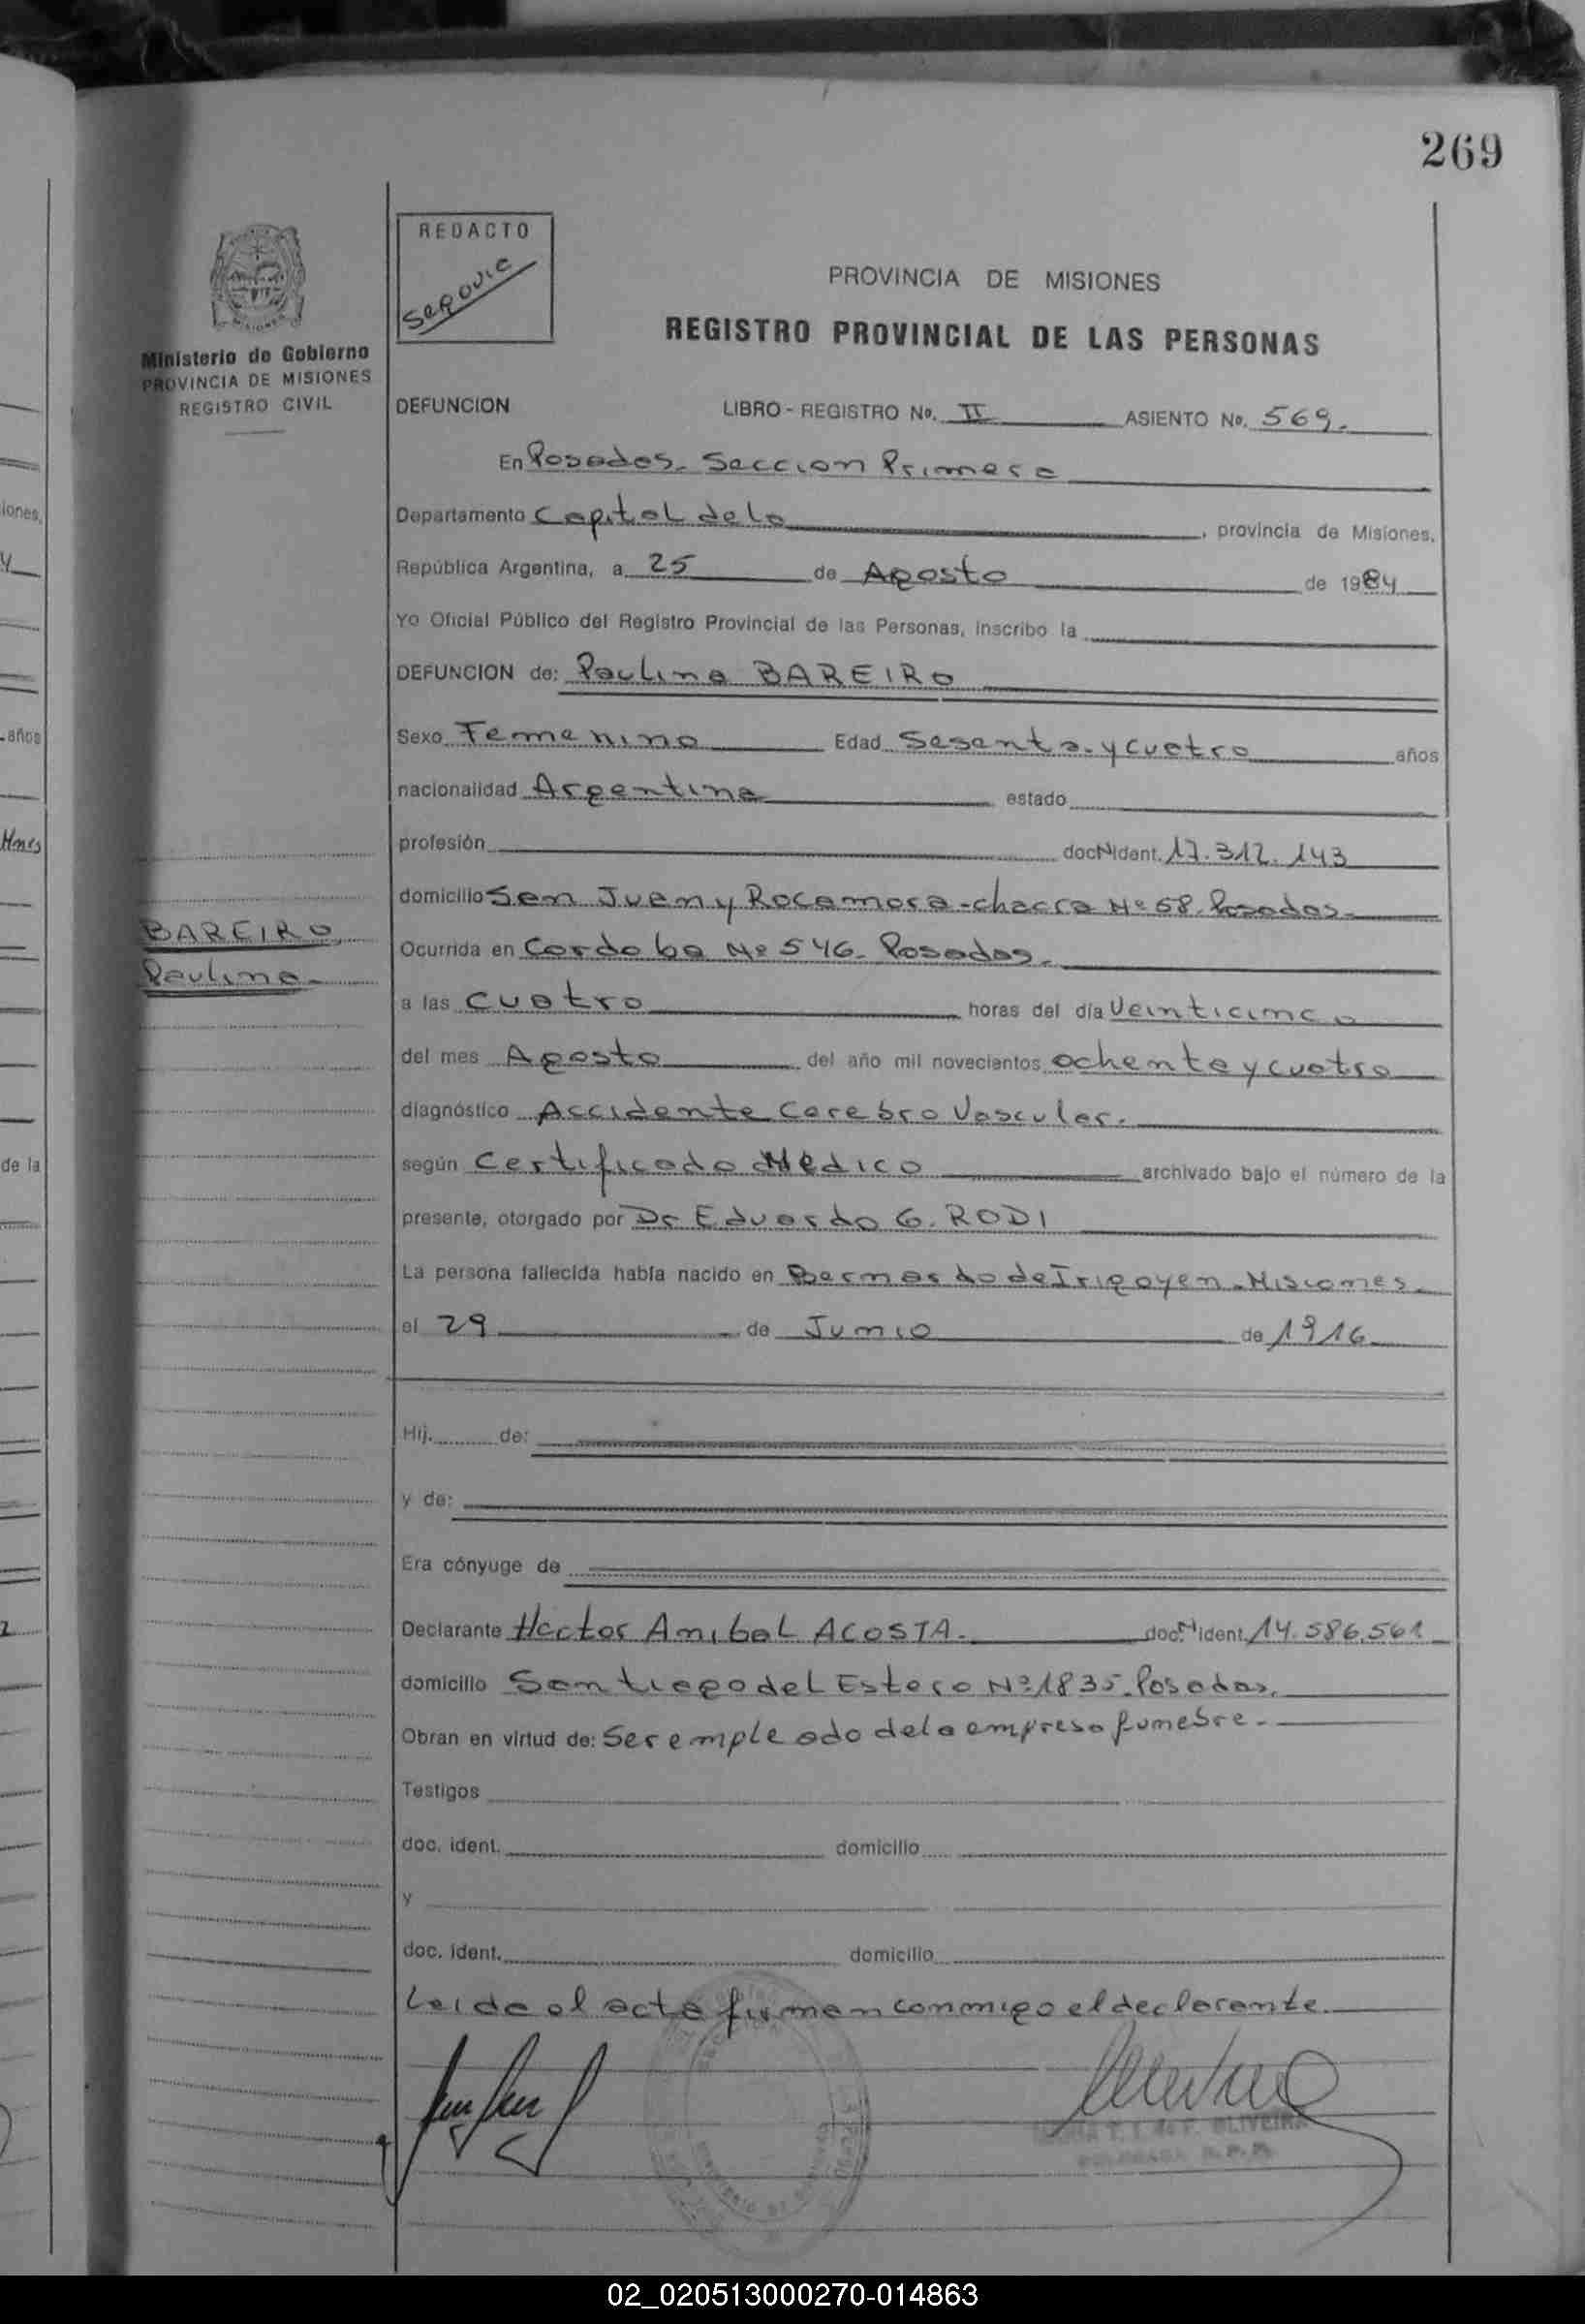 269
REDACTO
Segovia
MISIONES
Ministerio de Gobierno
PROVINCIA DE MISIONES
REGISTRO CIVIL
PROVINCIA DE MISIONES
REGISTRO PROVINCIAL DE LAS PERSONAS
DEFUNCION LIBRO - REGISTRO No. II ASIENTO No. 569.
En Posadas. Seccion Primera
Departamento Capital de la , provincia de Misiones,
República Argentina, a 25 de Agosto de 1984
Yo Oficial Público del Registro Provincial de las Personas, inscribo la
DEFUNCION de: Paulina BAREIRO
Sexo Femenino Edad Sesenta y cuatro años
nacionalidad Argentina estado
profesión doc N ident. 17.312.143
domicilio San Juan y Rocamora - chacra Nº 58. Posadas.
BAREIRO
Paulina
Ocurrida en Cordoba Nº 546. Posadas.
a las cuatro horas del día Veinticinco
del mes Agosto del año mil novecientos ochenta y cuatro
diagnóstico Accidente Cerebro Vascular.
según Certificado Medico archivado bajo el número de la
presente, otorgado por Dr Eduardo G. RODI
La persona fallecida había nacido en Bernardo de Irigoyen - Misiones
el 29 de Junio de 1916
Hij. de:
y de:
Era cónyuge de
Declarante Hector Anibal ACOSTA. doc. N ident. 14.586.561
domicilio Santiago del Estero Nº 1835. Posadas.
Obran en virtud de: Ser empleado de la empresa funebre.
Testigos
doc. ident. domicilio
y
doc. ident. domicilio
Leida el acta firman conmigo el declarante.
OLIVEIRA
02_020513000270-014863